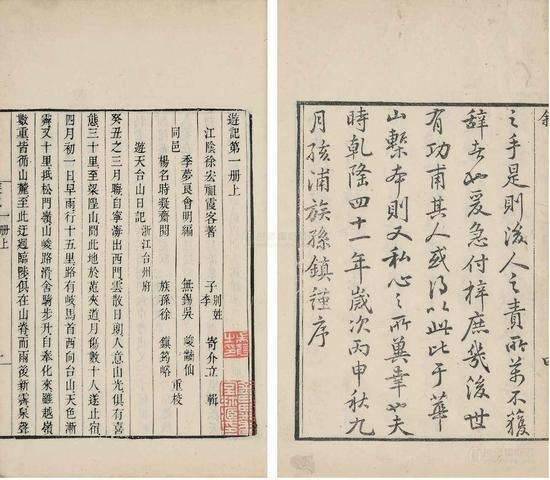 之手是則後人之責所萬不獲
辭者也爰急付梓庶幾後世
有功甫其人或得以此比于華
山槧本則又私心之所冀幸也夫
時乾隆四十一年歲次丙申秋九
月浦族孫鎮謹序
遊記第一册上
江陰徐宏祖霞客著 子李 別姓 寄介立 輯
季夢良會明編 無錫吳 峻黼仙
同邑 重校
楊名時凝齋閱 族孫徐 鎮筠峪
遊天台山日記 浙江台州府
癸丑之三月晦自寧海出西門雲散日朗人意山光俱有喜
態三十里至梁隍山聞此地於菟夾道月傷數十人遂止宿
四月初一日早雨行十五里路有岐馬首西向台山天色漸
霽又十里抵松門嶺山峻路滑舍騎步行自奉化來雖越嶺
數重皆循山麓至此迂迴臨陟俱在山脊而雨後新霽泉聲